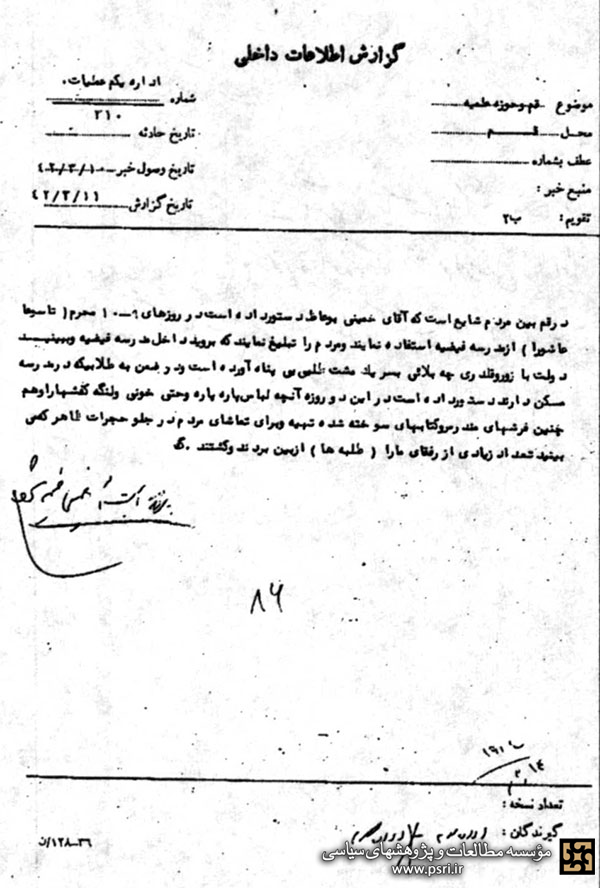 گزارش اطلاعات داخلی
اداره یکم عملیات.
موضوع قم وحوزه علمیه
شماره ۲۱۰
محل قم
تاریخ حادثه
عطف بشماره
تاریخ وصول خبر ۴۲/۳/۱۰
منبع خبر :
تاریخ گزارش ۴۲/۳/۱۱
تقویم : ب۲
در قم بین مردم شایع است که آقای خمینی بوعاظ دستور داده است در روزهای ۹ــ۱۰ محرم ( تاسوعا
عاشورا ) از مدرسه فیضیه استفاده نمایند ومردم را تبلیغ نمایند که بروید داخل مدرسه فیضیه وببینید
دولت با زور وقلدری چه بلائی بسر یك مشت طلبه‌بی پناه آورده است ودر ضمن به طلابیکه در مدرسه
مسکن دارند دستور داده است در این دو روزه آنچه لباس پاره پاره وحتی خونی ولنگه کفشها را وهم
چنین فرشهای مندرس وکتابهای سوخته شده تهیه وبرای تماشای مردم در جلو حجرات ظاهر کنند
ببینید تعداد زیادی از رفقای مارا ( طلبه ها ) ازبین بردند وکشتند .گ
۸۶
تعداد نسخه :
گیرندگان :
۳۶ــ۱۲۸/ن
مؤسسه مطالعات و پژوهشهای سیاسی
www.psri.ir